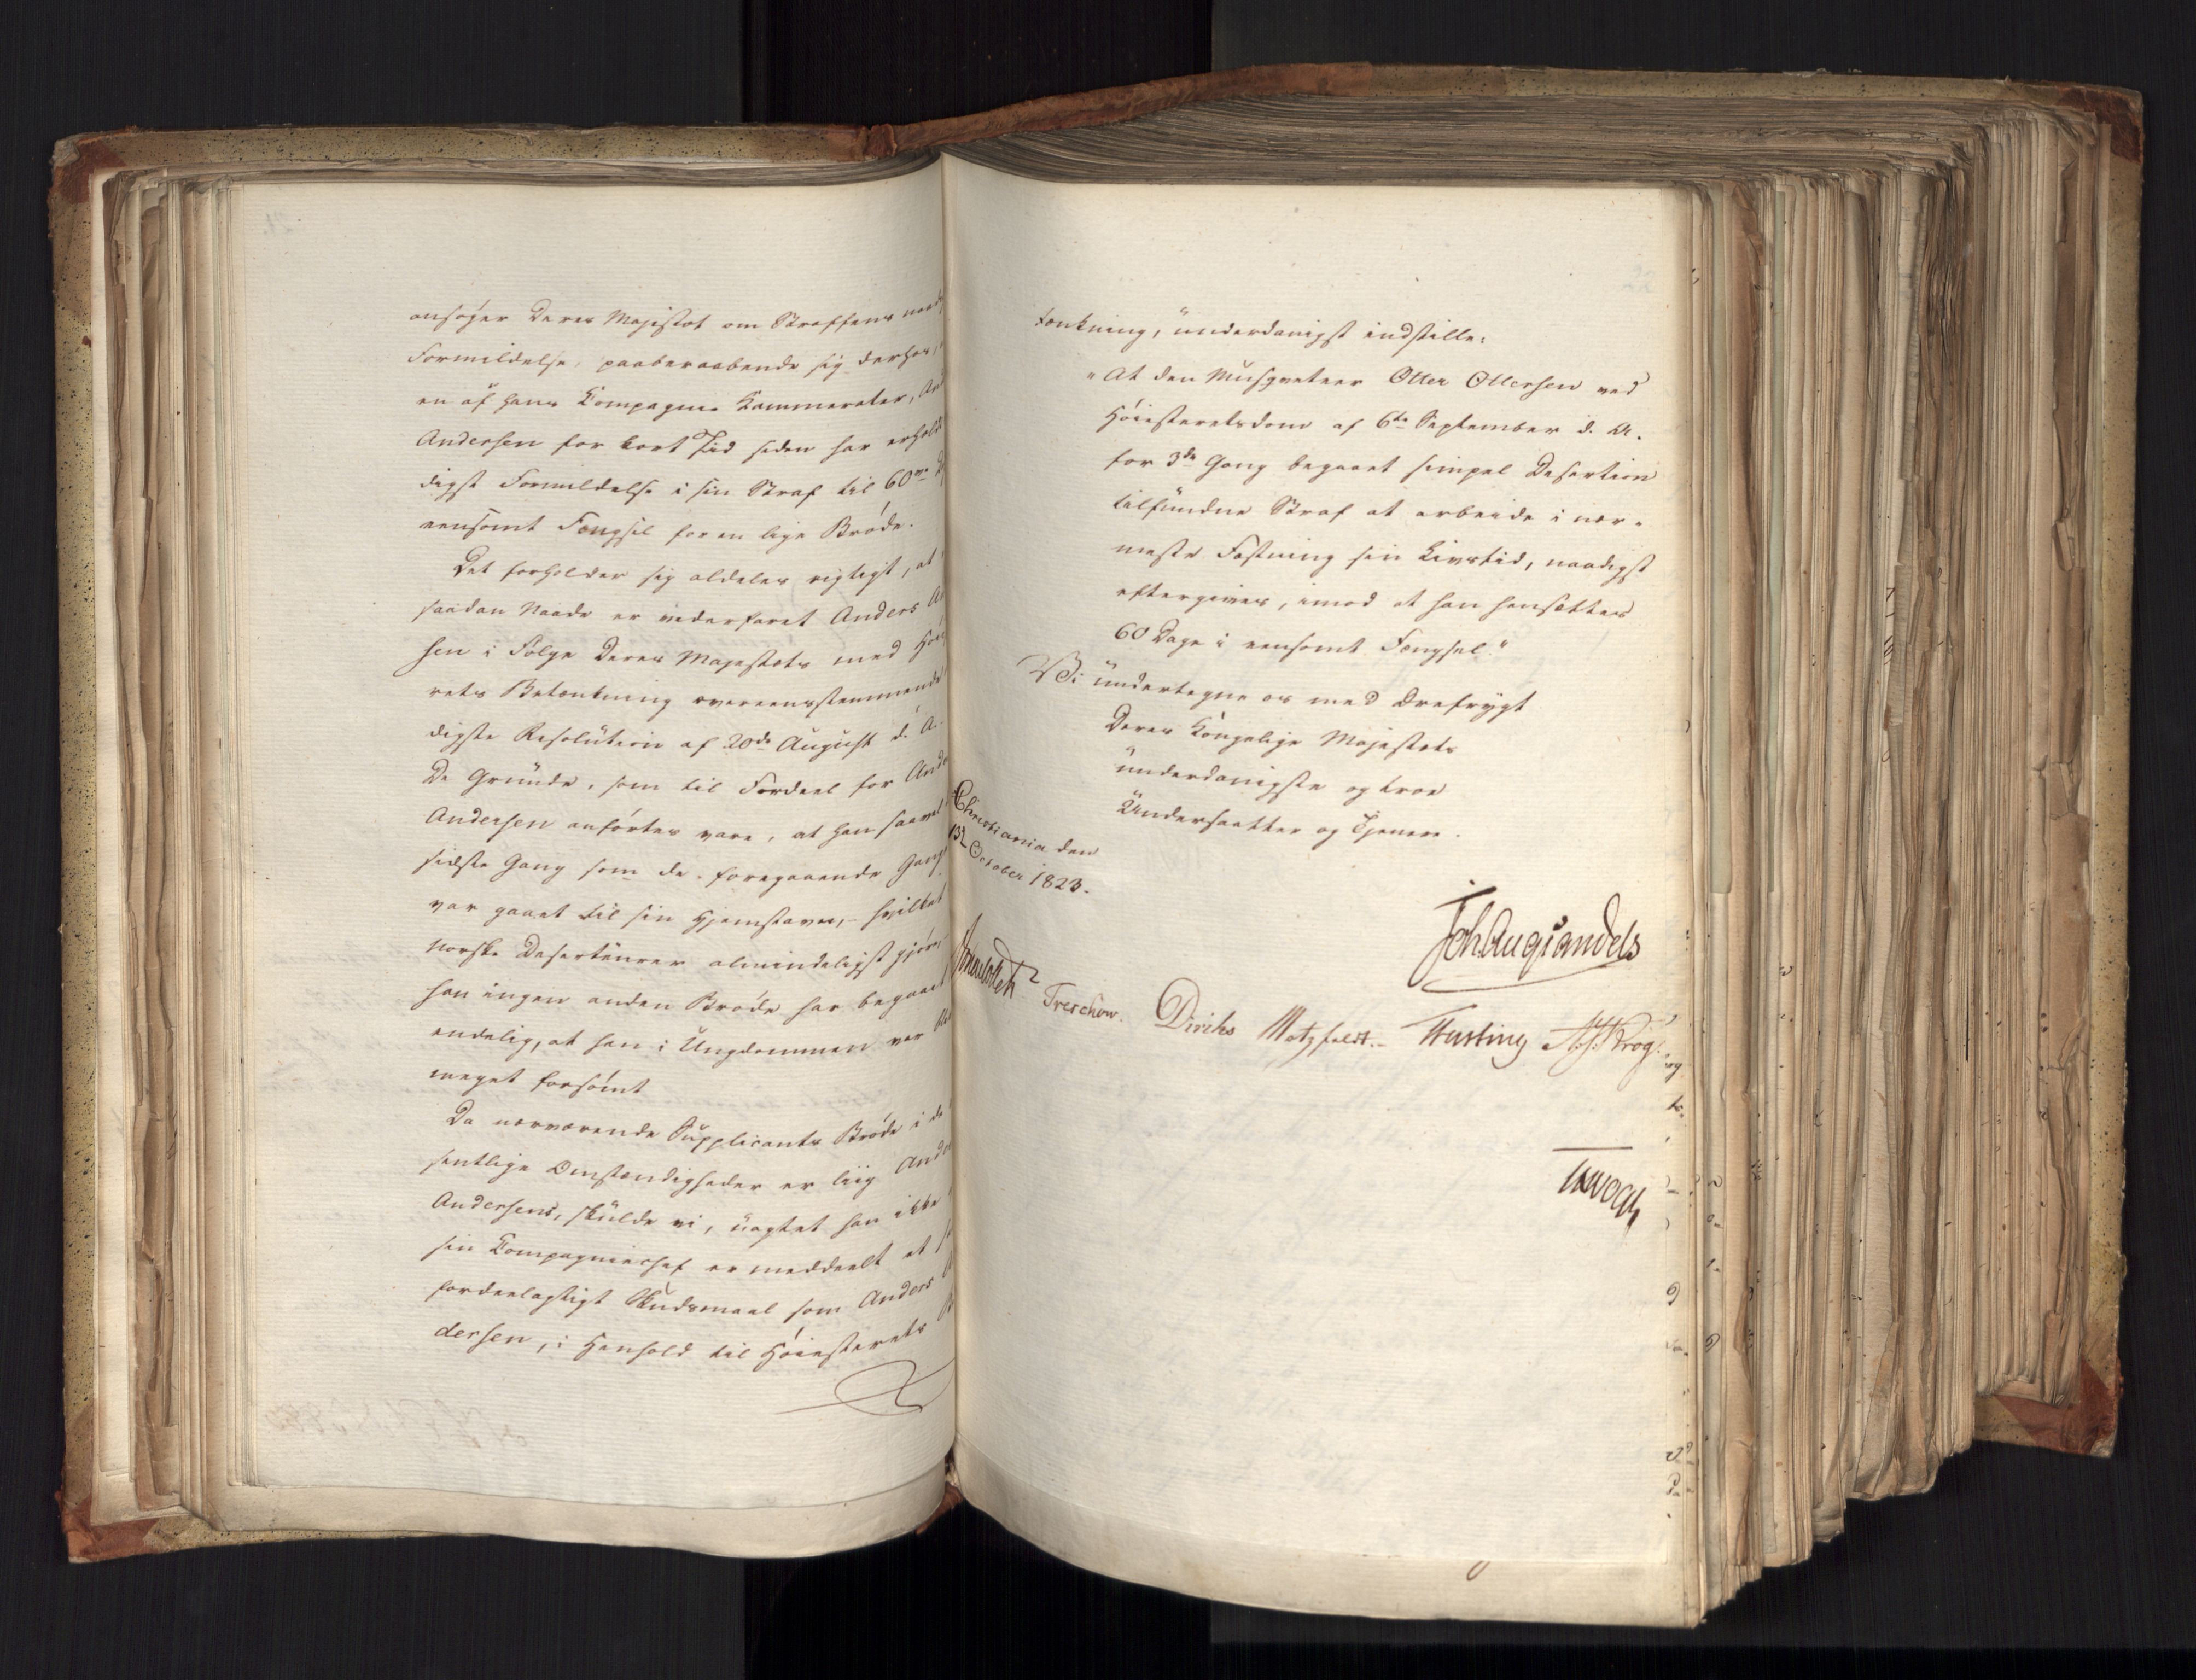 ansøger Deres Majestæt om Straffens
Formildelse, paaberaabende sig derhos,
en af hans Compagnie Kammerater,
Andersen for kort Tid siden har erholdt
digst Formildelse i sin Straf til 60
eensomt Fængsel for en lige Brøde.
Det forholder sig aldeles rigtigt, at
saadan Naade er vederfaret Anders
sen i Følge Deres Majestæts med
rets Betænkning overeensstemmende
digste Resolution af 20de August d. A.
De Grunde, som til Fordeel for
Andersen anførtes vare, at han saavel
sidste Gang som de foregaaende
var gaaet til sin Hjemstavn, hvilket
norske Deserteurer almindeligst gjøre,
han ingen anden Brøde har begaaet
endelig, at han i Ungdommen var
meget forsømt
Da nærværende Supplicants Brøde i de
sentlige Omstændigheder er liig
Andersens, skulde vi, uagtet han ikke
sin Compagniechef er meddeelt et
fordeelagtigt Skudsmaal som Anders
dersen, i Henhold til Høiesterets
tænkning, underdanigst indstille:
"At den Musqueteer Otter Ottersen ved
Høiesteretsdom af 6te September d. A.
for 3die Gang begaaet simpel Desertion
tilfundne Straf at arbeide i nær-
meste Fæstning sin Livstid, naadigst
eftergives, imod at han hensættes
60 Dage i eensomt Fængsel."
Vi undertegne os med Ærefrygt
Deres Kongelige Majestæts
underdanigste og troe
Undersaatter og Tjenere.
Christiania den
13 October 1823.
Joh Aug Sandels
Treschow. Diriks Motzfeldt. Fasting